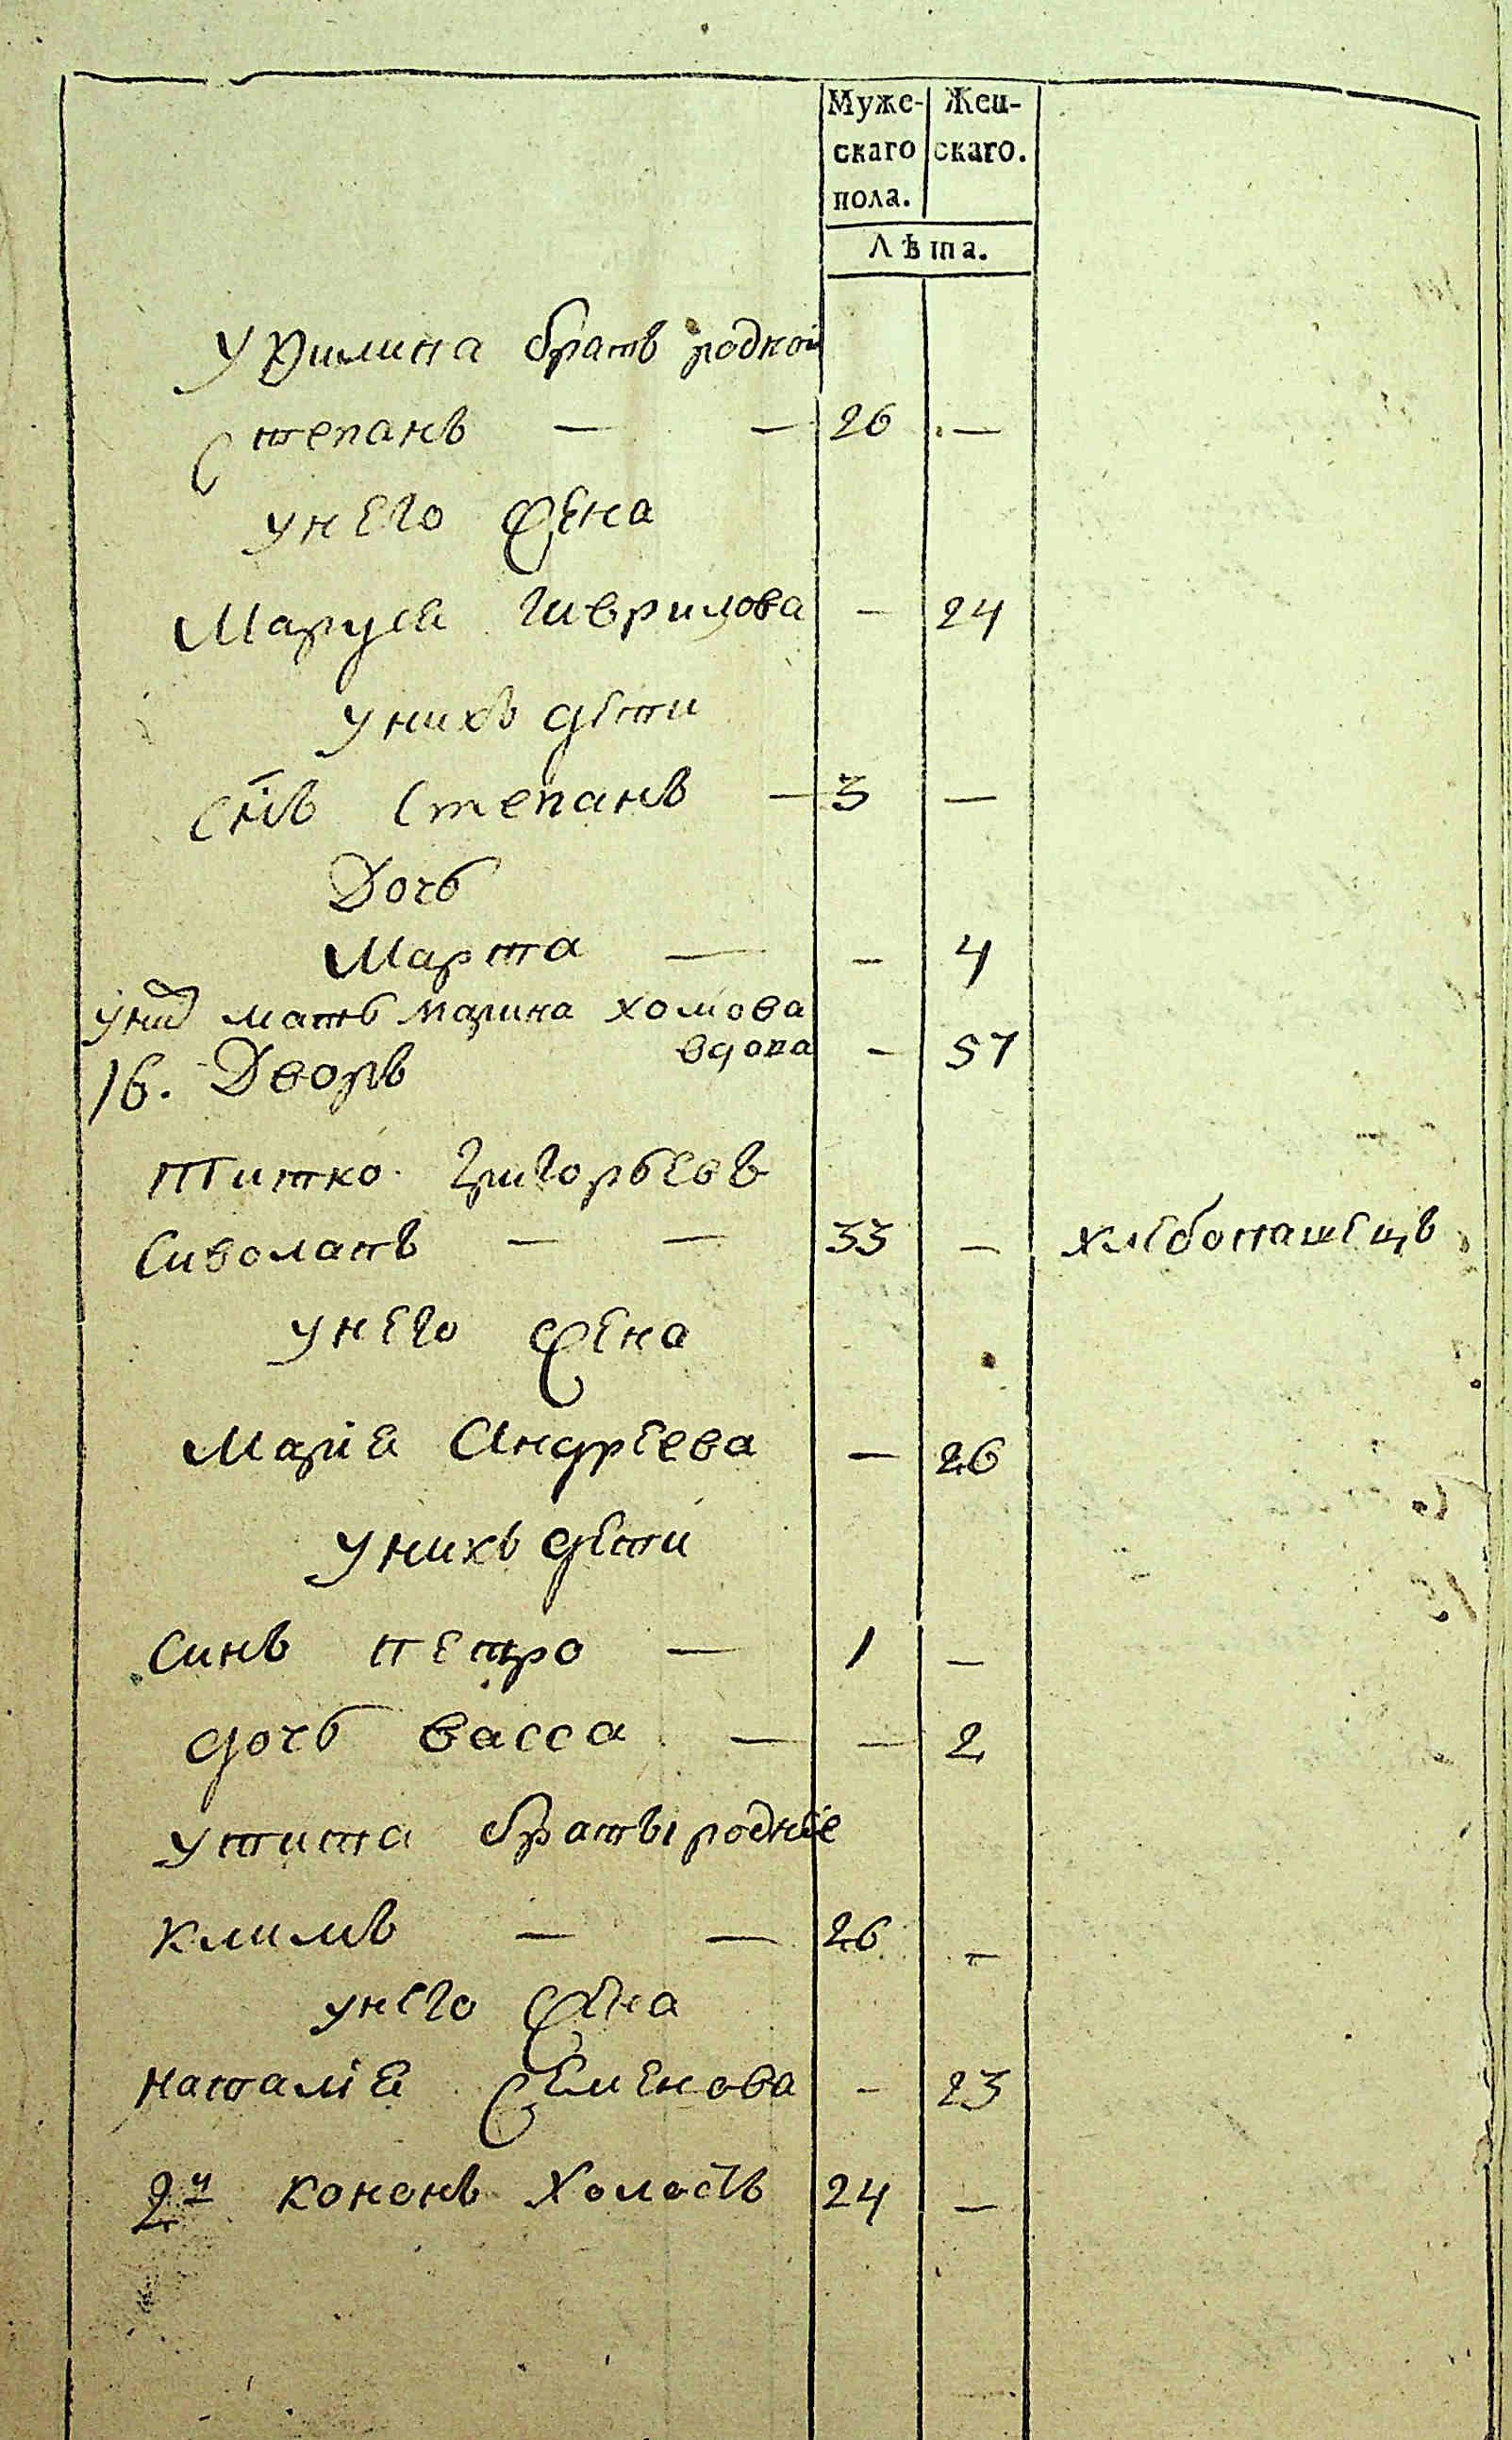 Муже- Жен-
скаго скаго.
пола.
Лѣта.
У Филипа братъ родной
Степанъ — — 26 —
у него жена
Маруся Гаврилова — 24
у нихъ дети
Снъ Степанъ — 3 —
Дочь
Марта — — 4
у них мать Марина Хомова
вдова — 57
16. Дворъ
Титко Григорьевъ
Сиволапъ — — 33 — хлебопашецъ
у него жена
Марія Андреева — 26
у нихъ дети
Синъ Петро — 1 —
дочь Васса — — 2
у Тита браты родные
Климъ — — 26 —
у него жена
Наталія Семенова — 23
2й Кононъ Холостъ 24 —